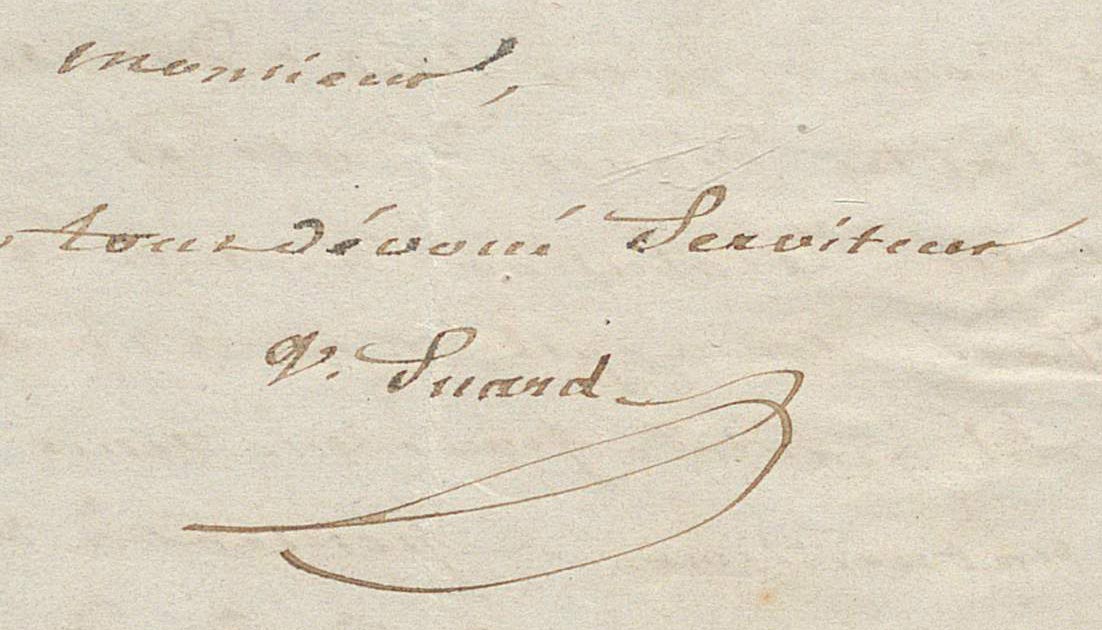 Monsieur,
tout dévoué Serviteur
G. Suard